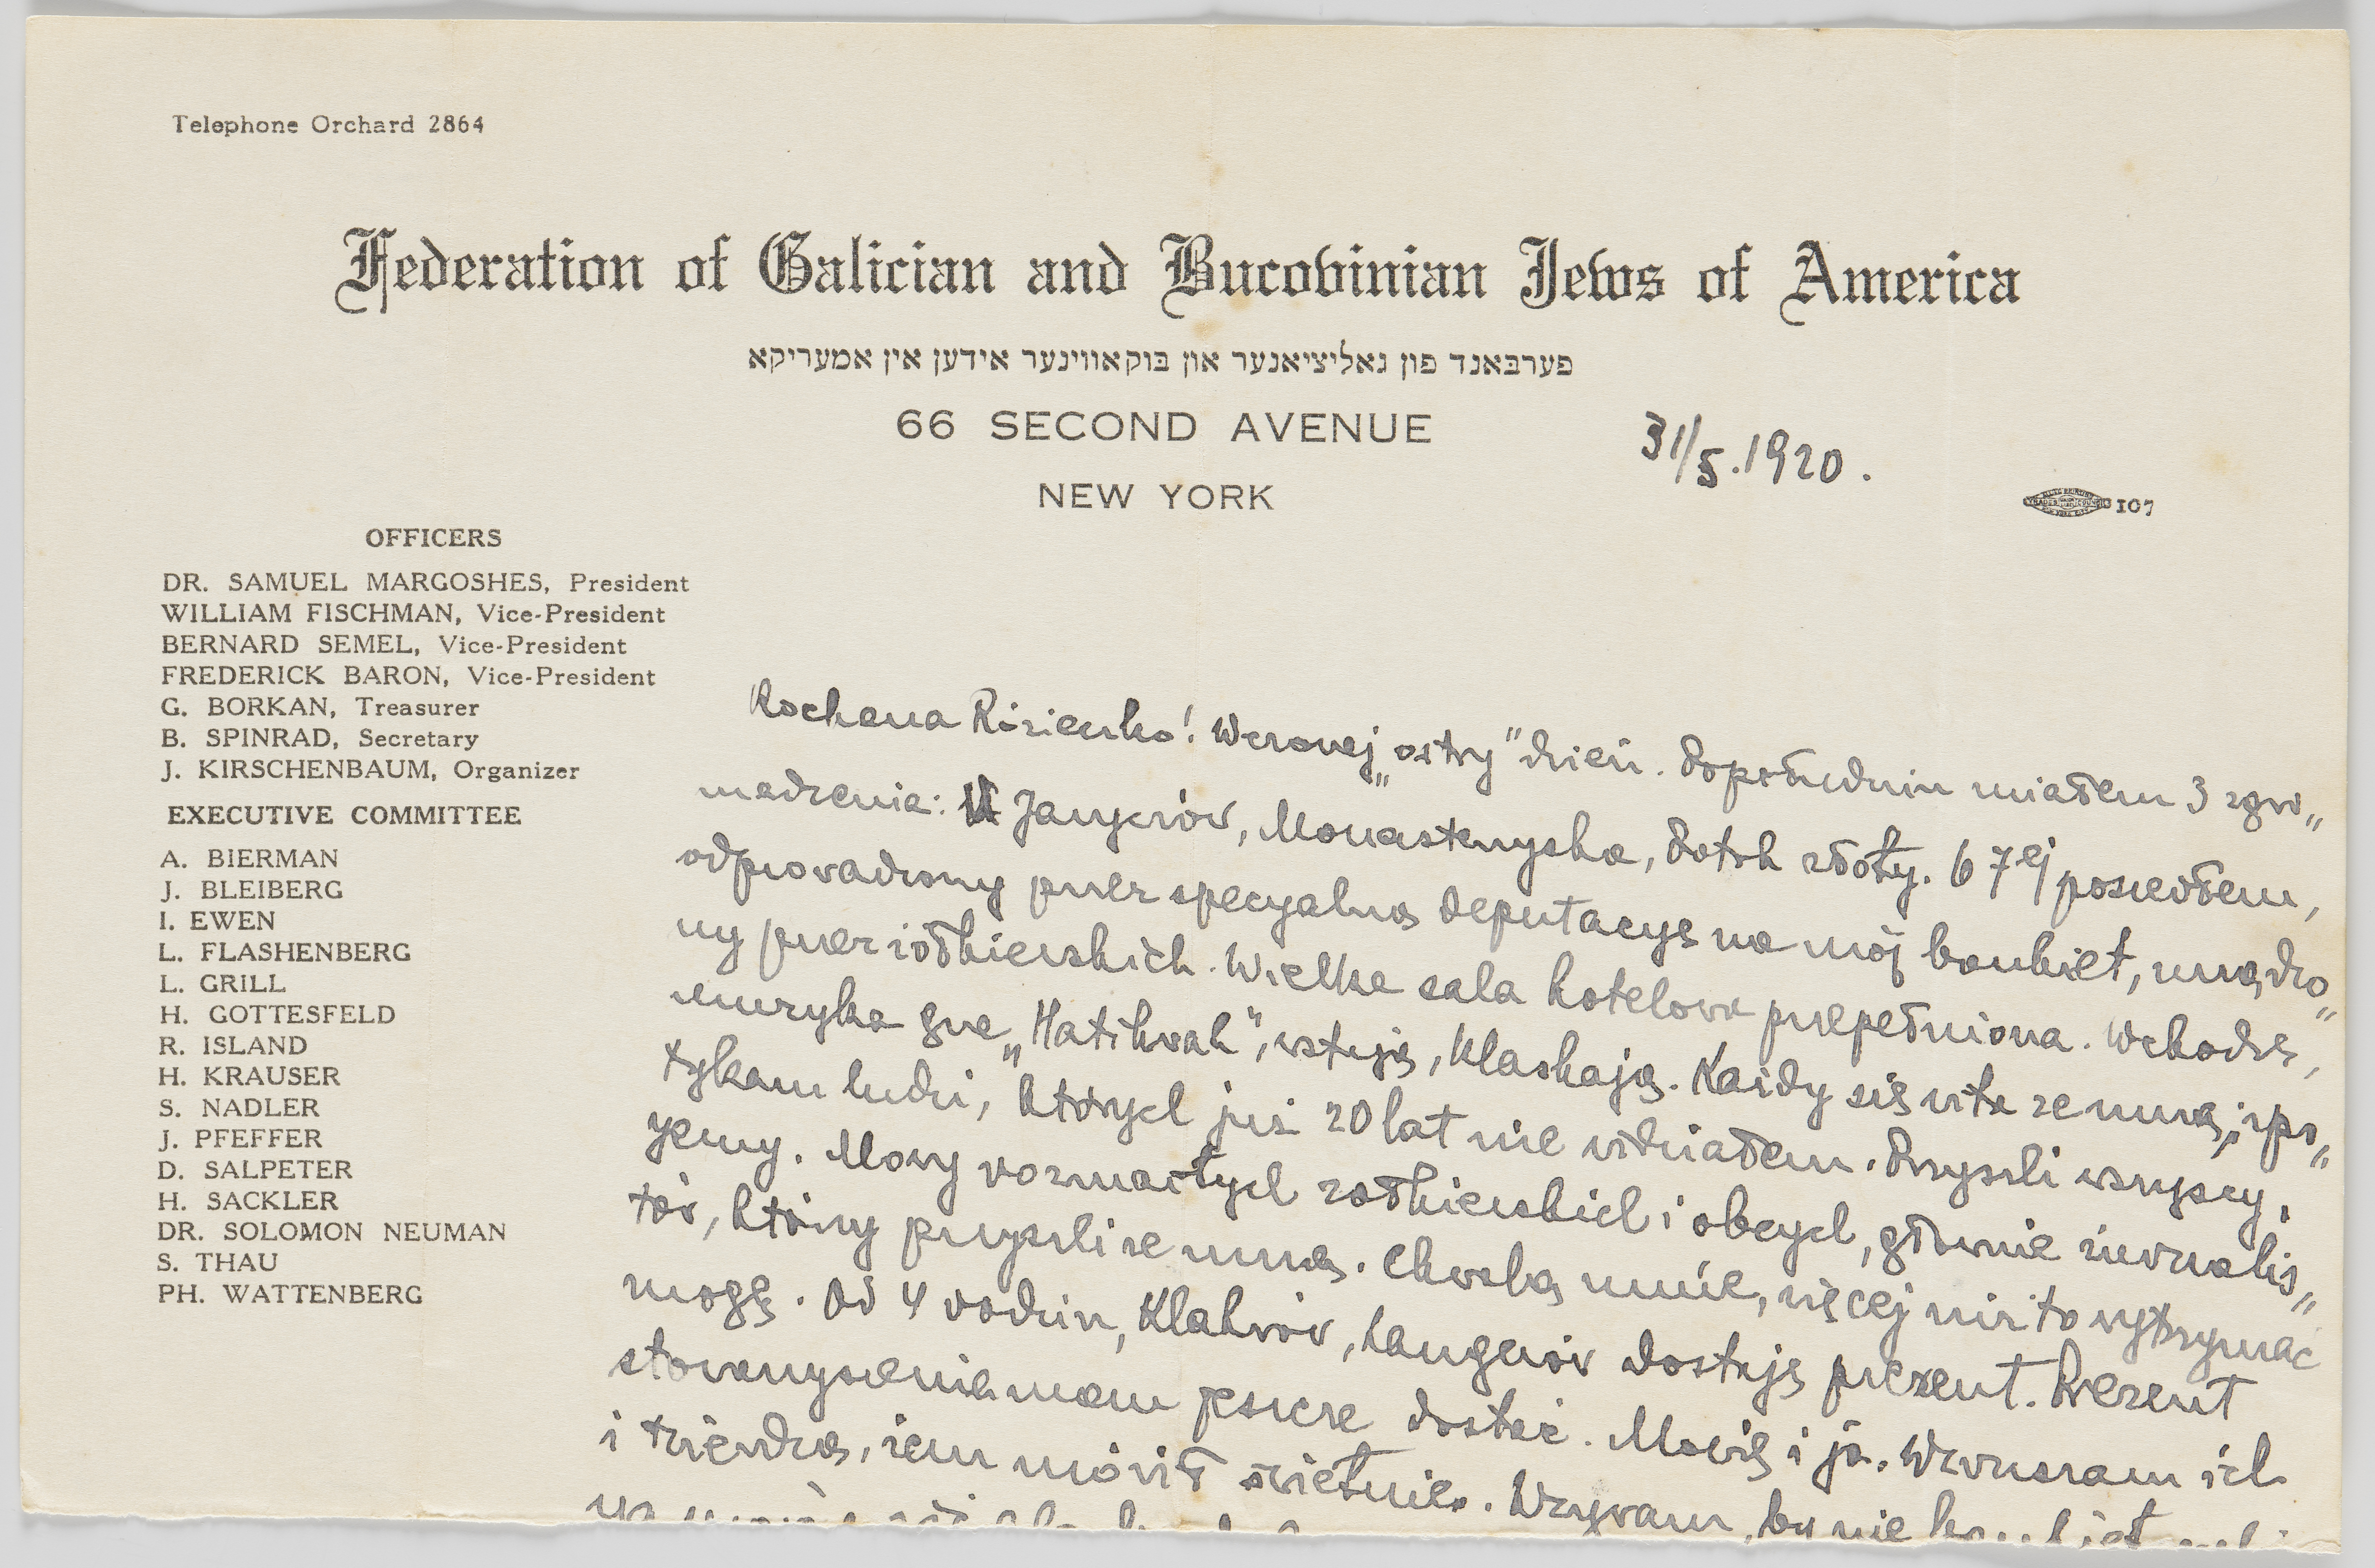 Telephone Orchard 2864
Federation of Galician and Bucovinian Jews of America
פערבאנד פון גאליציאנער און בוקאווינער אידען אין אמעריקא
66 SECOND AVENUE
31/5.1920.
NEW YORK
107
OFFICERS
DR. SAMUEL MARGOSHES, President
WILLIAM FISCHMAN, Vice-President
BERNARD SEMEL, Vice-President
FREDERICK BARON, Vice-President
G. BORKAN, Treasurer
B. SPINRAD, Secretary
J. KIRSCHENBAUM, Organizer
EXECUTIVE COMMITTEE
A. BIERMAN
J. BLEIBERG
I. EWEN
L. FLASHENBERG
L. GRILL
H. GOTTESFELD
R. ISLAND
H. KRAUSER
S. NADLER
J. PFEFFER
D. SALPETER
H. SACKLER
DR. SOLOMON NEUMAN
S. THAU
PH. WATTENBERG
Kochana Rózienko! Wczoraj „ostry" dzień. Dopołudniu miałem 3 zgro„
madzenia: Janyczów, Monasterzyska, Potok złoty. O 7ej poszedłem,
odprowadzony przez specyalną deputacyę na mój bankiet, urządzo„
ny przez żółkiewskich. Wielka sala hotelowa przepełniona. Wchodzę,
muzyka gra „Hatikvah", wstają, klaskają. Każdy się wita ze mną, spo„
tykam ludzi, których już 20 lat nie widziałem. Przyszli wszyscy,
Mowy rozmaitych żółkiewskich i obcych, głównie żurnalis„
tów, którzy przyszli ze mną. Chwalą mnie, więcej niż to wytrzymać
mogę. Od 4 rodzin, Klahrów, Langerów dostaję prezent. Prezent
stowarzyszenia mam jeszcze dostać. Mówię i ja. Wzruszam ich
i twierdzą, żem mówił świetnie. Wzywam, by nie